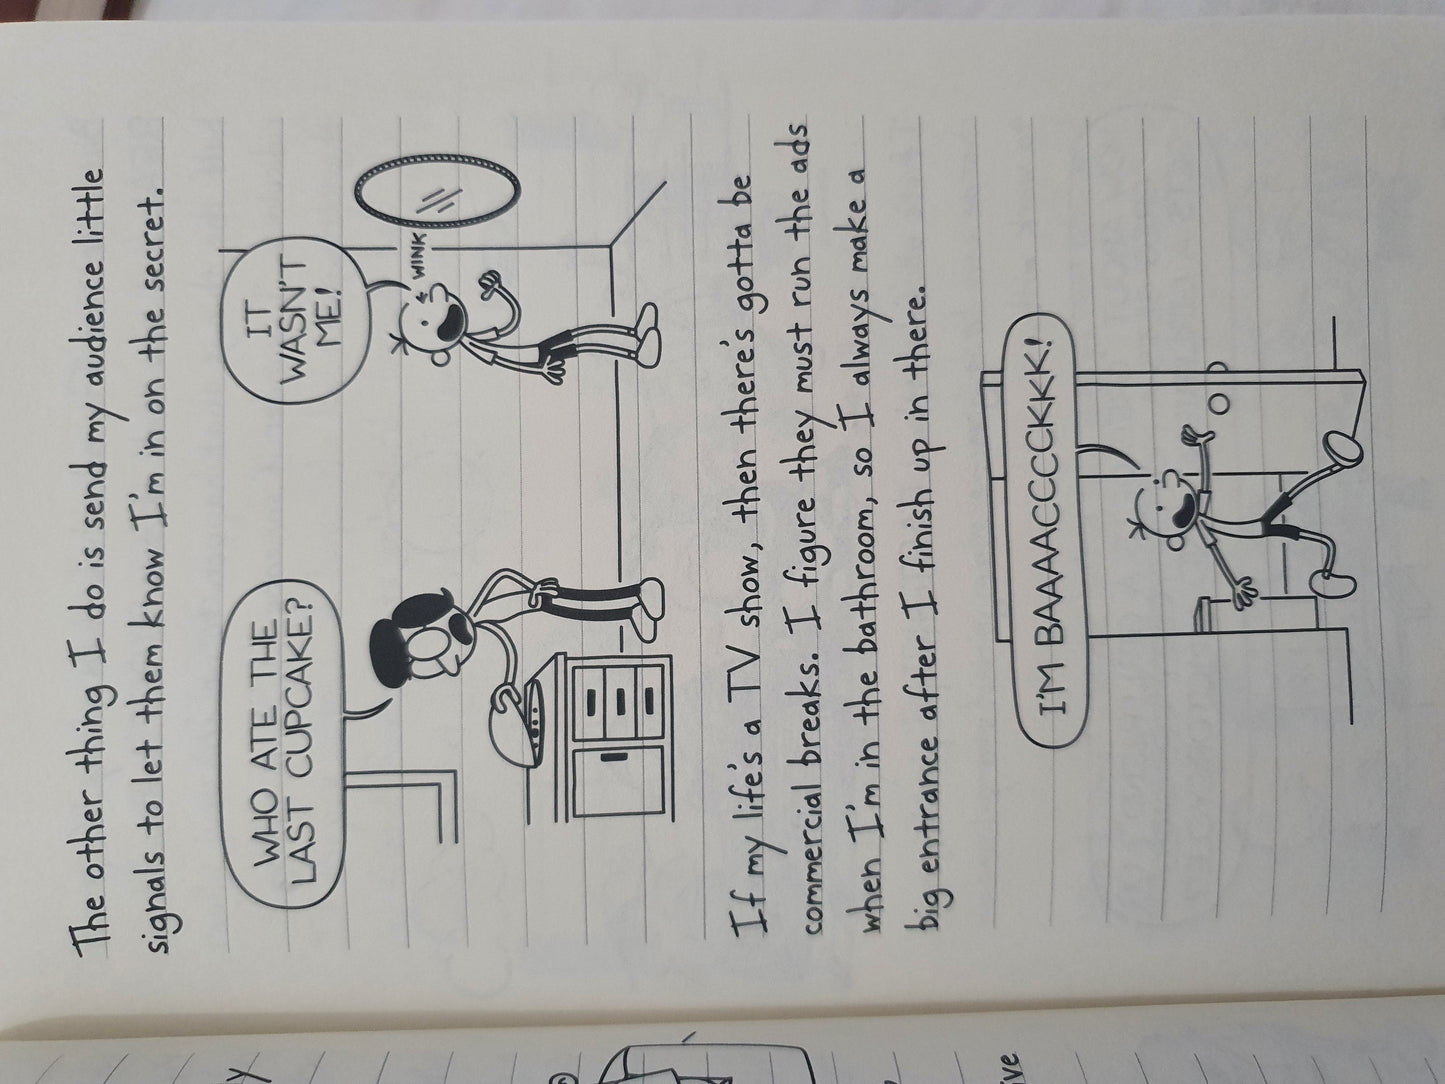 The other thing I do is send my audience little
signals to let them know I'm in on the secret.
WHO ATE THE
LAST CUPCAKE?
IT
WASN'T
ME!
WINK
If my life's a TV show, then there's gotta be
commercial breaks. I figure they must run the ads
when I'm in the bathroom, so I always make a
big entrance after I finish up in there.
I'M BAAAACCCCKKK!